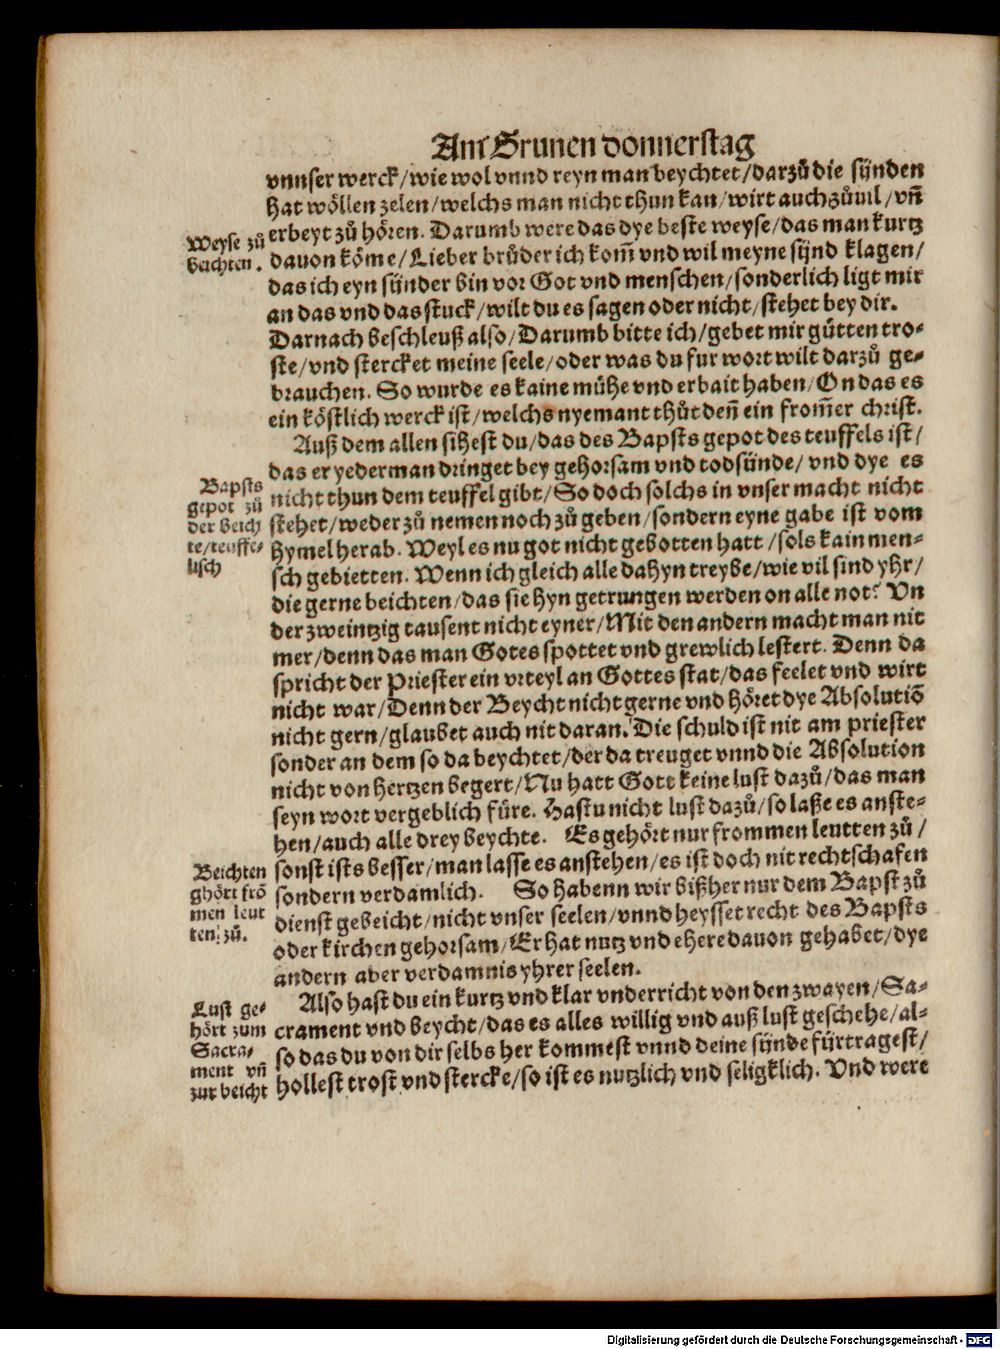 Am Grunen donnerstag
vnnser werck/wie wol vnnd reyn man beychtet/darzů die sünden
hat wöllen zelen/welchs man nicht thun kan/wirt auch zůuil/vñ
Weyse zů
beichten.
erbeyt zů hören. Darumb were das dye beste weyse/das man kurtz
dauon köme/Lieber brůder ich kom̃ vnd wil meyne sünd klagen/
das ich eyn sünder bin vor Got vnd menschen/sonderlich ligt mir
an das vnd das stuck/wilt du es sagen oder nicht/stehet bey dir.
Darnach beschleuß also/Darumb bitte ich/gebet mir gůtten tro⸗
ste/vnd stercket meine seele/oder was du fur wort wilt darzů ge⸗
brauchen. So wurde es kaine mühe vnd erbait haben/On das es
ein köstlich werck ist/welchs nyemant thůt deñ ein from̃er christ.
Auß dem allen sihest du/das des Bapsts gepot des teuffels ist/
das er yederman dringet bey gehorsam vnd todsünde/vnd dye es
Bapsts
gepot zů
der beich
te/teuffe⸗
lisch
nicht thun dem teuffel gibt/So doch solchs in vnser macht nicht
stehet/weder zů nemen noch zů geben/sondern eyne gabe ist vom
hymel herab. Weyl es nu got nicht gebotten hatt/sols kain men⸗
sch gebietten. Wenn ich gleich alle dahyn treybe/wie vil sind yhr/
die gerne beichten/das sie hyn getrungen werden on alle not? Vn
der zweintzig tausent nicht eyner/Mit den andern macht man nit
mer/denn das man Gotes spottet vnd grewlich lestert. Denn da
spricht der Priester ein vrteyl an Gottes stat/das feelet vnd wirt
nicht war/Denn der Beycht nicht gerne vnd höret dye Absolutiõ
nicht gern/glaubet auch nit daran. Die schuld ist nit am priester
sonder an dem so da beychtet/der da treuget vnnd die Absolution
nicht von hertzen begert/Nu hatt Gott keine lust dazů/das man
seyn wort vergeblich füre. Hastu nicht lust dazů/so laße es anste⸗
hen/auch alle drey beychte. Es gehört nur frommen leutten zů/
Beichten
ghört frõ
men leut
ten zů.
sonst ists besser/man lasse es anstehen/es ist doch nit rechtschafen
sondern verdamlich. So habenn wir bißher nur dem Bapst zů
dienst gebeicht/nicht vnser seelen/vnnd heysset recht des Bapsts
oder kirchen gehorsam/Er hat nutz vnd ehere dauon gehabet/dye
andern aber verdamnis yhrer seelen.
Lust ge⸗
hört zum
Sacra⸗
ment vñ
zur beicht
Also hast du ein kurtz vnd klar vnderricht von den zwayen/Sa⸗
crament vnd beycht/das es alles willig vnd auß lust geschehe/al⸗
so das du von dir selbs her kommest vnnd deine sünde fürtragest/
hollest trost vnd stercke/so ist es nutzlich vnd seligklich. Vnd were
Digitalisierung gefördert durch die Deutsche Forschungsgemeinschaft - DFG